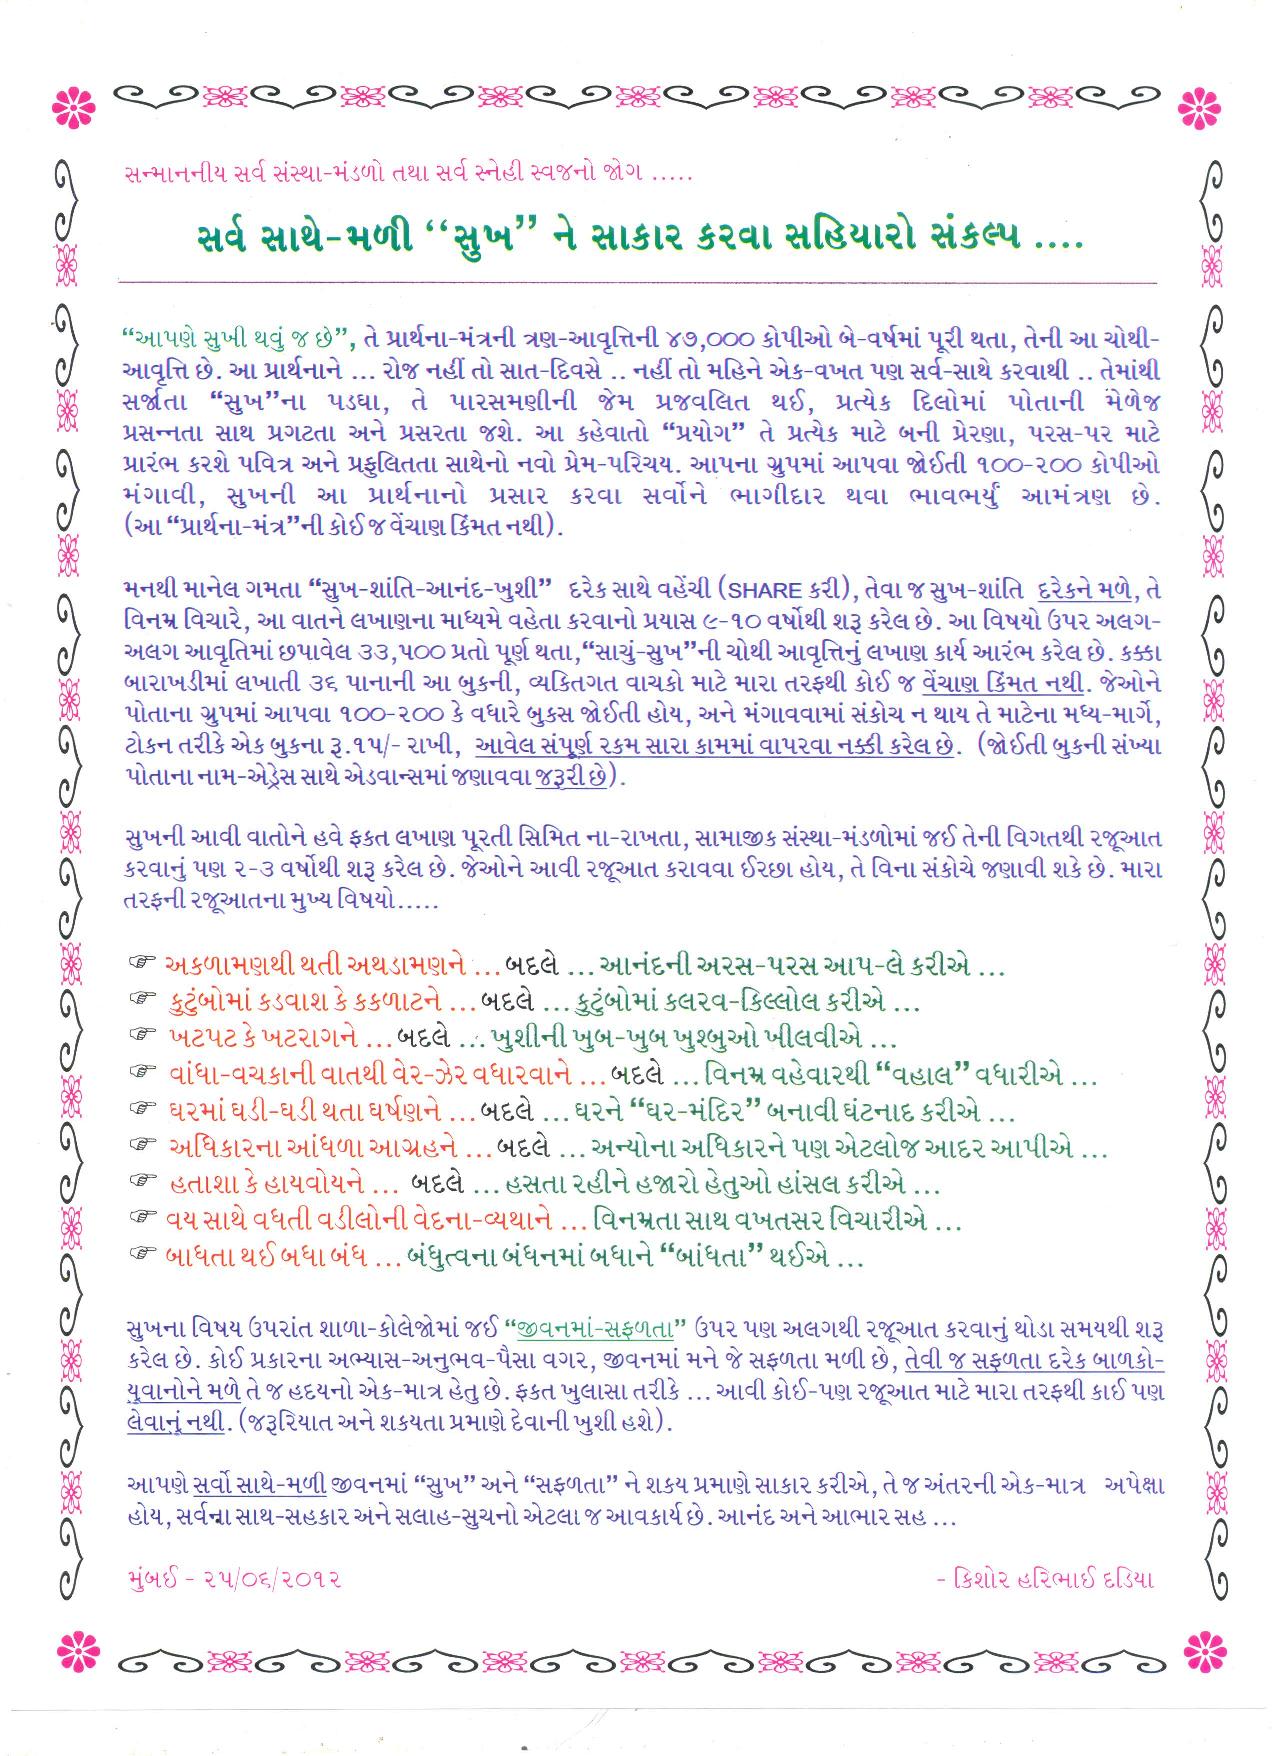 સન્માનનીય સર્વ સંસ્થા-મંડળો તથા સર્વ સ્નેહી સ્વજનો જોગ .....
સર્વ સાથે-મળી “સુખ” ને સાકાર કરવા સહિયારો સંકલ્પ ....
“આપણે સુખી થવું જ છે”, તે પ્રાર્થના-મંત્રની ત્રણ-આવૃત્તિની ૪૭,૦૦૦ કોપીઓ બે-વર્ષમાં પૂરી થતા, તેની આ ચોથી-
આવૃત્તિ છે. આ પ્રાર્થનાને ... રોજ નહીં તો સાત-દિવસે .. નહીં તો મહિને એક-વખત પણ સર્વ-સાથે કરવાથી .. તેમાંથી
સર્જાતા “સુખ”ના પડઘા, તે પારસમણીની જેમ પ્રજવલિત થઈ, પ્રત્યેક દિલોમાં પોતાની મેળેજ
પ્રસન્નતા સાથ પ્રગટતા અને પ્રસરતા જશે. આ કહેવાતો “પ્રયોગ” તે પ્રત્યેક માટે બની પ્રેરણા, પરસ-પર માટે
પ્રારંભ કરશે પવિત્ર અને પ્રફુલિતતા સાથેનો નવો પ્રેમ-પરિચય. આપના ગ્રુપમાં આપવા જોઈતી ૧૦૦-૨૦૦ કોપીઓ
મંગાવી, સુખની આ પ્રાર્થનાનો પ્રસાર કરવા સર્વોને ભાગીદાર થવા ભાવભર્યું આમંત્રણ છે.
(આ “પ્રાર્થના-મંત્ર”ની કોઈ જ વેંચાણ કિંમત નથી).
મનથી માનેલ ગમતા “સુખ-શાંતિ-આનંદ-ખુશી” દરેક સાથે વહેંચી (SHARE કરી), તેવા જ સુખ-શાંતિ દરેકને મળે, તે
વિનમ્ર વિચારે, આ વાતને લખાણના માધ્યમે વહેતા કરવાનો પ્રયાસ ૯-૧૦ વર્ષોથી શરૂ કરેલ છે. આ વિષયો ઉપર અલગ-
અલગ આવૃતિમાં છપાવેલ ૩૩,૫૦૦ પ્રતો પૂર્ણ થતા,“સાચું-સુખ”ની ચોથી આવૃત્તિનું લખાણ કાર્ય આરંભ કરેલ છે. કક્કા
બારાખડીમાં લખાતી ૩૬ પાનાની આ બુકની, વ્યકિતગત વાચકો માટે મારા તરફથી કોઈ જ વેંચાણ કિંમત નથી. જેઓને
પોતાના ગ્રુપમાં આપવા ૧૦૦-૨૦૦ કે વધારે બુકસ જોઈતી હોય, અને મંગાવવામાં સંકોચ ન થાય તે માટેના મધ્ય-માર્ગે,
ટોકન તરીકે એક બુકના રૂ.૧૫/- રાખી, આવેલ સંપૂર્ણ રકમ સારા કામમાં વાપરવા નક્કી કરેલ છે. (જોઈતી બુકની સંખ્યા
પોતાના નામ-એડ્રેસ સાથે એડવાન્સમાં જણાવવા જરૂરી છે).
સુખની આવી વાતોને હવે ફકત લખાણ પૂરતી સિમિત ના-રાખતા, સામાજીક સંસ્થા-મંડળોમાં જઈ તેની વિગતથી રજૂઆત
કરવાનું પણ ૨-૩ વર્ષોથી શરૂ કરેલ છે. જેઓને આવી રજૂઆત કરાવવા ઈરછા હોય, તે વિના સંકોચે જણાવી શકે છે. મારા
તરફની રજૂઆતના મુખ્ય વિષયો.....
☞ અકળામણથી થતી અથડામણને ... બદલે ... આનંદની અરસ-પરસ આપ-લે કરીએ ...
☞ કુટુંબોમાં કડવાશ કે કકળાટને ... બદલે ... કુટુંબોમાં કલરવ-કિલ્લોલ કરીએ ...
☞ ખટપટ કે ખટરાગને ... બદલે ... ખુશીની ખુબ-ખુબ ખુશ્બુઓ ખીલવીએ ...
☞ વાંધા-વચકાની વાતથી વેર-ઝેર વધારવાને ... બદલે ... વિનમ્ર વહેવારથી “વહાલ” વધારીએ ...
☞ ઘરમાં ઘડી-ઘડી થતા ઘર્ષણને ... બદલે ... ઘરને “ઘર-મંદિર” બનાવી ઘંટનાદ કરીએ ...
☞ અધિકારના આંધળા આગ્રહને ... બદલે ... અન્યોના અધિકારને પણ એટલોજ આદર આપીએ ...
☞ હતાશા કે હાયવોયને ... બદલે ... હસતા રહીને હજારો હેતુઓ હાંસલ કરીએ ...
☞ વય સાથે વધતી વડીલોની વેદના-વ્યથાને ... વિનમ્રતા સાથ વખતસર વિચારીએ ...
☞ બાધતા થઈ બધા બંધ ... બંધુત્વના બંધનમાં બધાને “બાંધતા” થઈએ ...
સુખના વિષય ઉપરાંત શાળા-કોલેજોમાં જઈ “જીવનમાં-સફળતા” ઉપર પણ અલગથી રજૂઆત કરવાનું થોડા સમયથી શરૂ
કરેલ છે. કોઈ પ્રકારના અભ્યાસ-અનુભવ-પૈસા વગર, જીવનમાં મને જે સફળતા મળી છે, તેવી જ સફળતા દરેક બાળકો-
યુવાનોને મળે તે જ હદયનો એક-માત્ર હેતુ છે. ફકત ખુલાસા તરીકે ... આવી કોઈ-પણ રજૂઆત માટે મારા તરફથી કાઈ પણ
લેવાનું નથી. (જરૂરિયાત અને શકયતા પ્રમાણે દેવાની ખુશી હશે).
આપણે સર્વો સાથે-મળી જીવનમાં “સુખ” અને “સફળતા” ને શકય પ્રમાણે સાકાર કરીએ, તે જ અંતરની એક-માત્ર અપેક્ષા
હોય, સર્વના સાથ-સહકાર અને સલાહ-સુચનો એટલા જ આવકાર્ય છે. આનંદ અને આભાર સહ ...
મુંબઈ - ૨૫/૦૬/૨૦૧૨ - કિશોર હરિભાઈ દડિયા